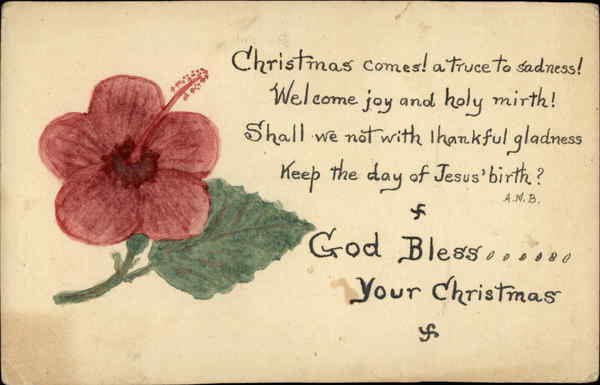 Christmas comes! a truce to sadness!
Welcome joy and holy mirth!
Shall we not with thankful gladness
Keep the day of Jesus' birth?
A.M.B.
卐
God Bless.......
Your Christmas
卐